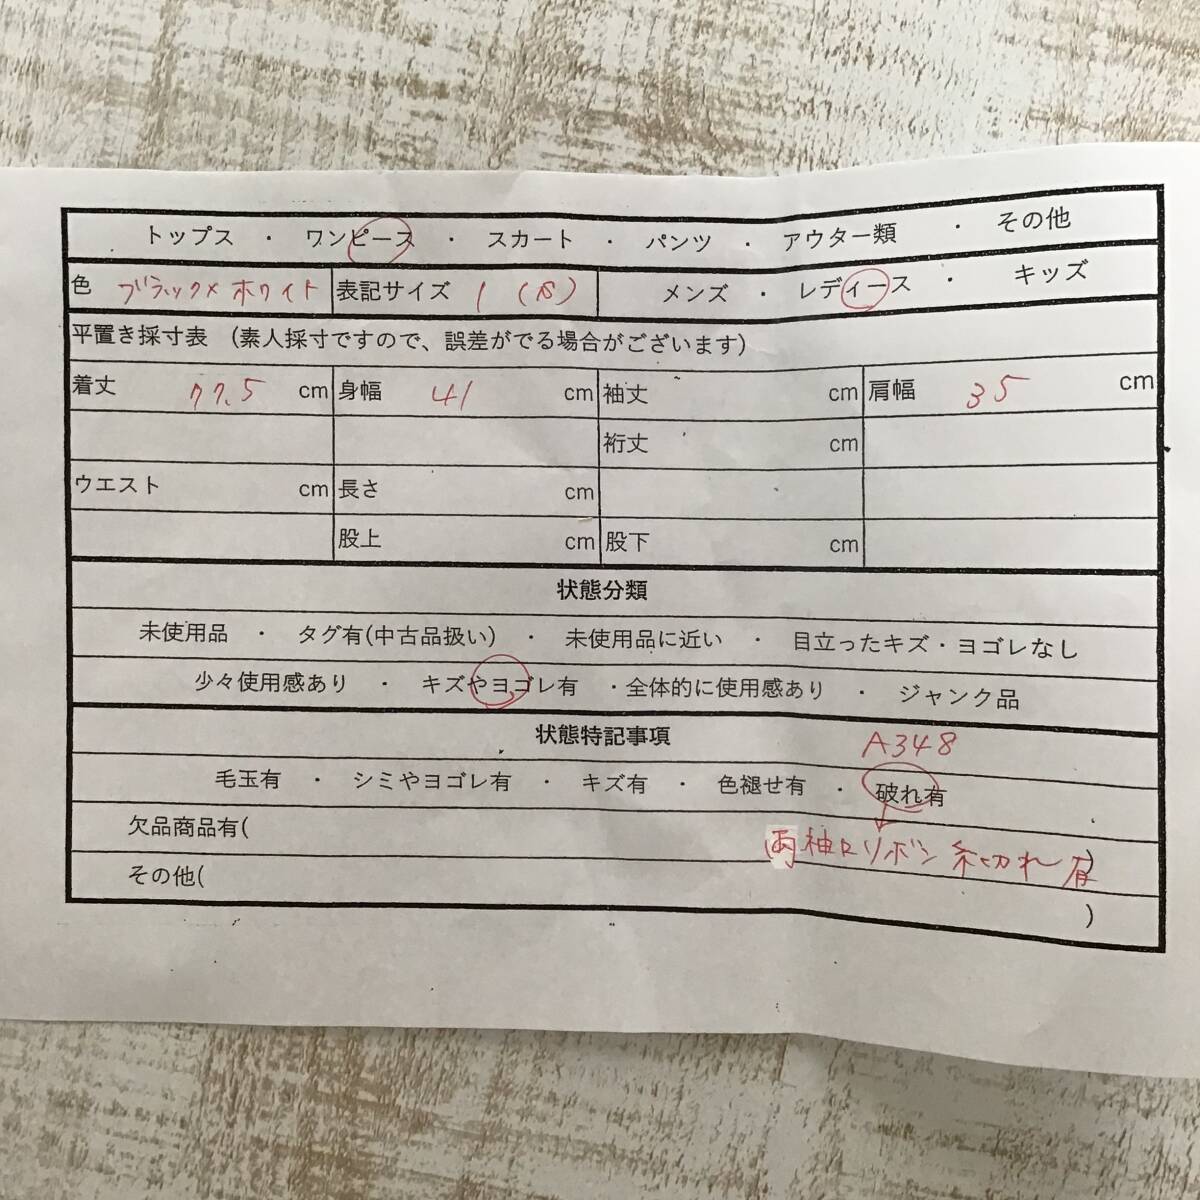 トップス ・ ワンピース ・ スカート ・ パンツ ・ アウター類 ・ その他
色 ブラック×ホワイト 表記サイズ 1 (S) メンズ ・ レディース ・ キッズ
平置き採寸表 (素人採寸ですので、誤差がでる場合がございます)
着丈 77.5 cm 身幅 41 cm 袖丈 cm 肩幅 35 cm
裄丈 cm
ウエスト cm 長さ cm
股上 cm 股下 cm
状態分類
未使用品 ・ タグ有(中古品扱い) ・ 未使用品に近い ・ 目立ったキズ・ヨゴレなし
少々使用感あり ・ キズやヨゴレ有 ・全体的に使用感あり ・ ジャンク品
状態特記事項 A348
毛玉有 ・ シミやヨゴレ有 ・ キズ有 ・ 色褪せ有 ・ 破れ有
欠品商品有( )
両袖口リボン糸切れ有
その他( )